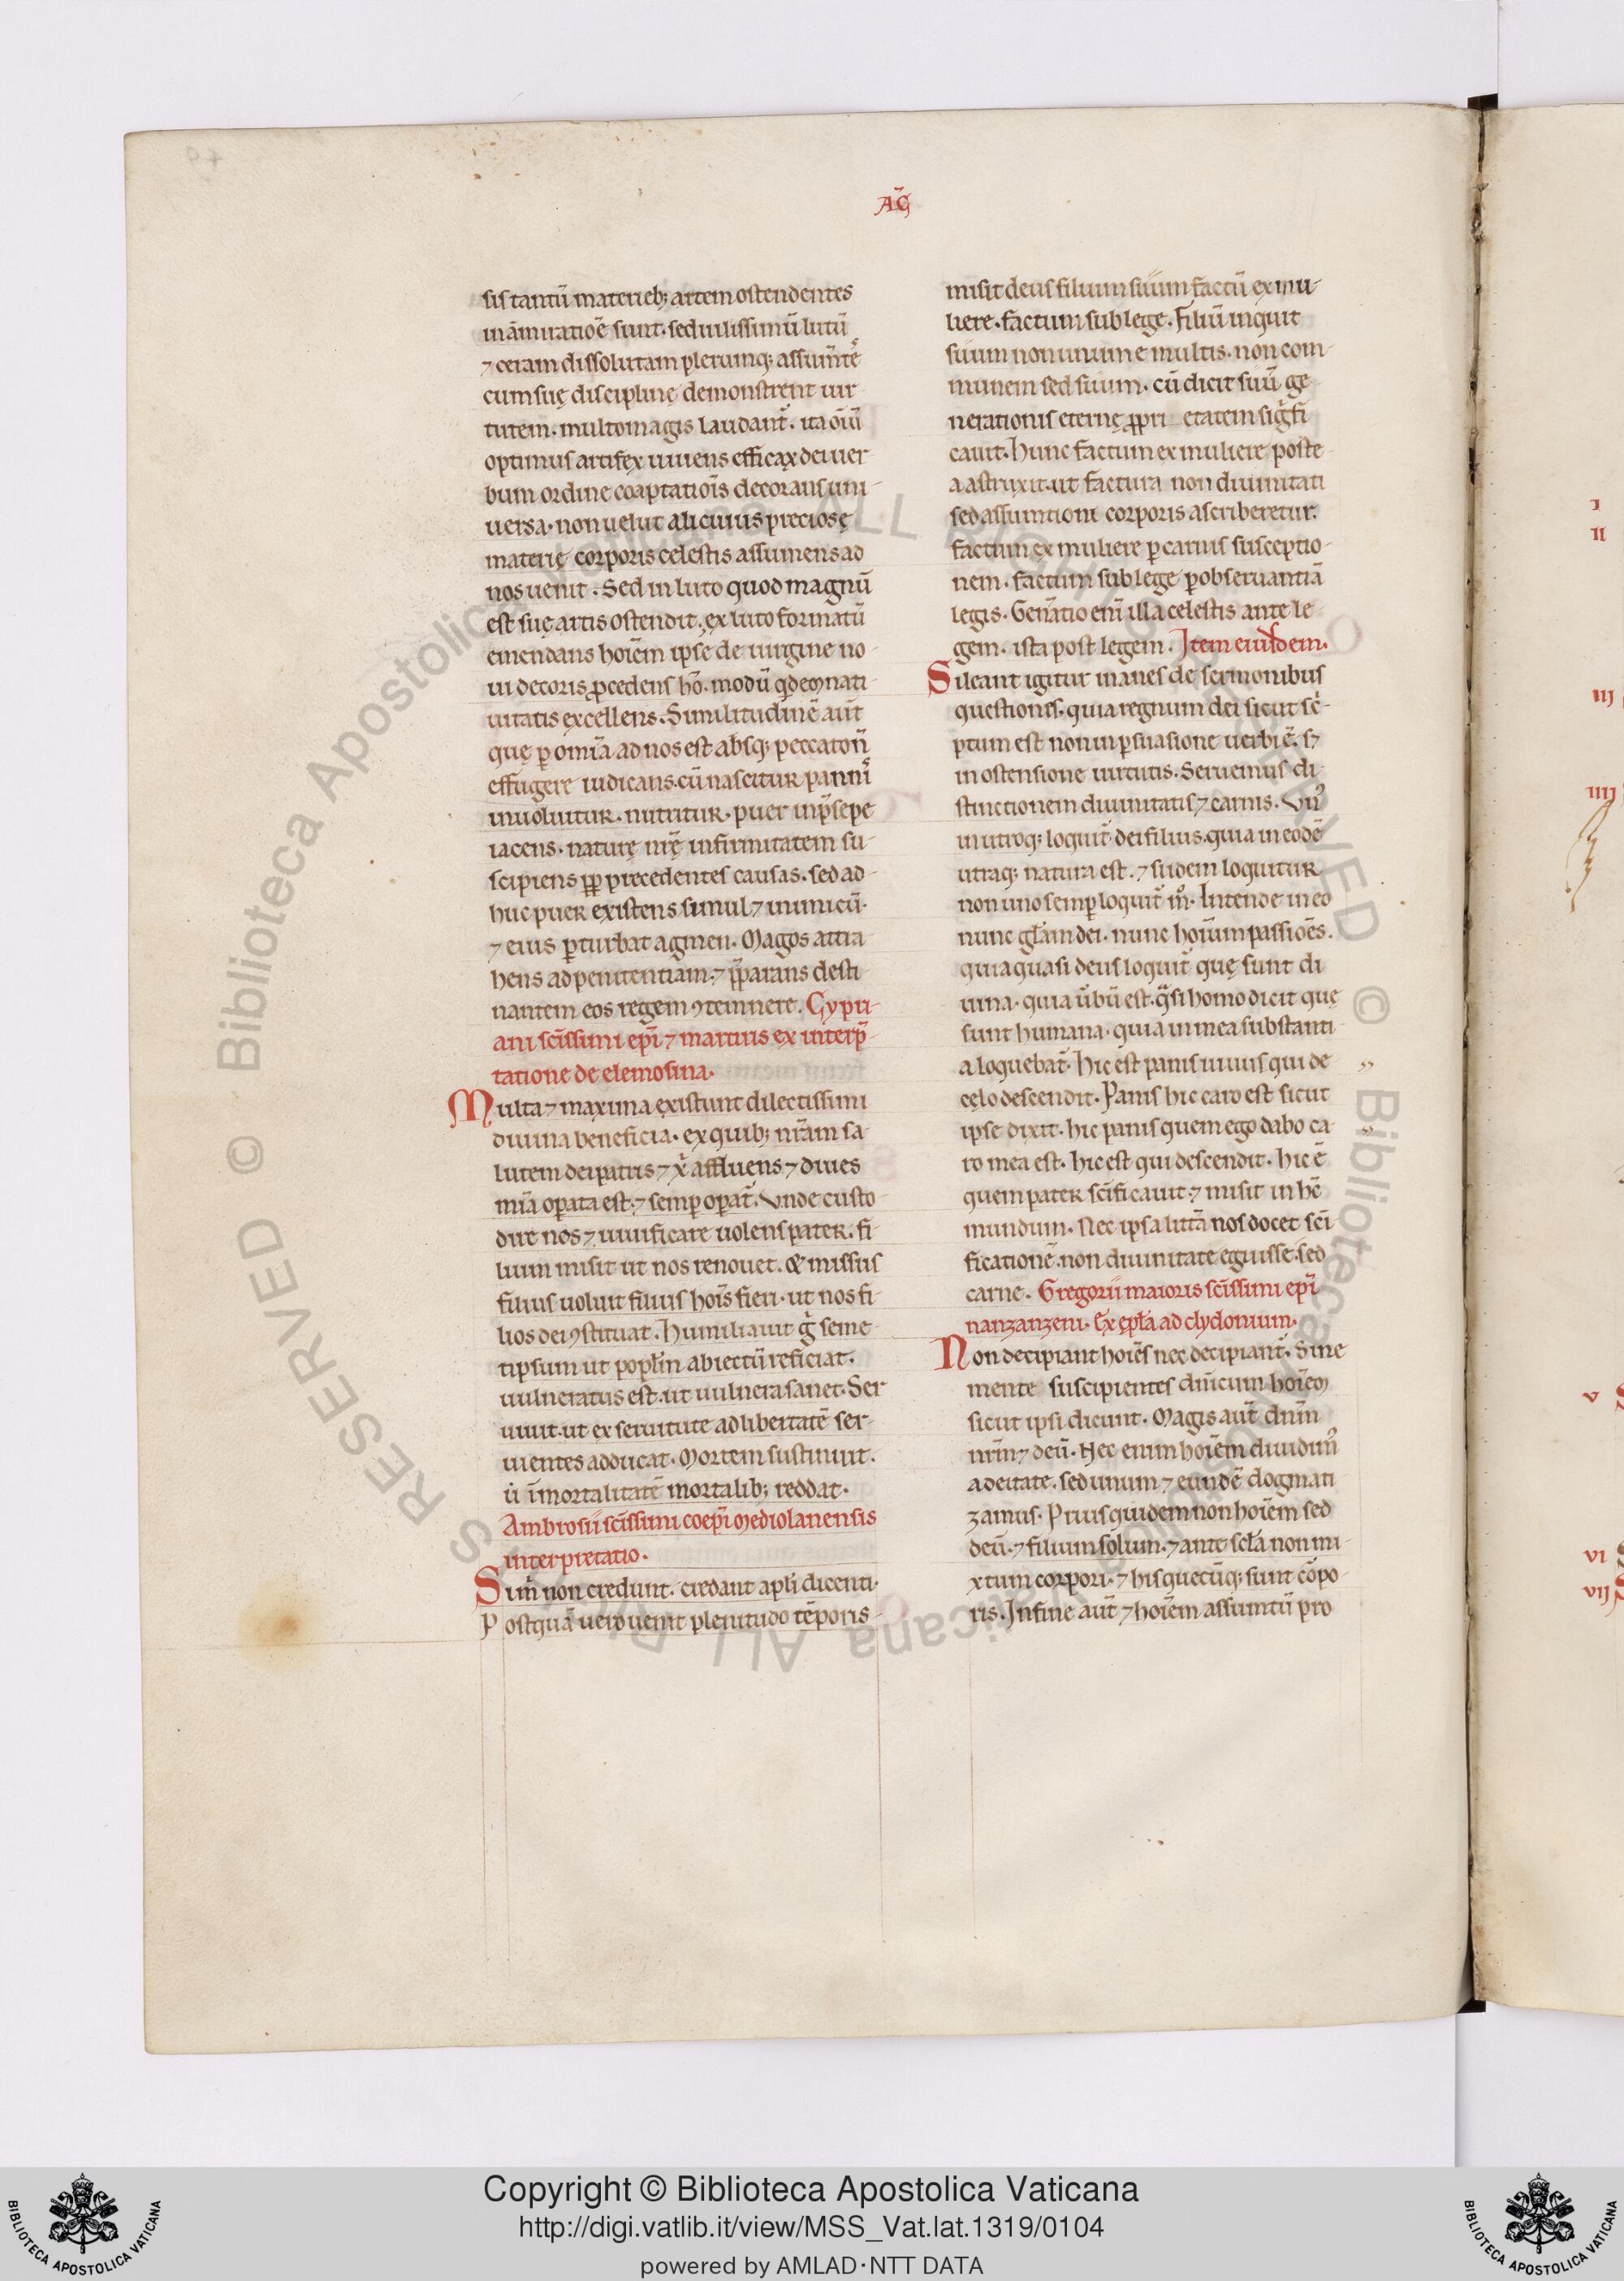 AC̃
sis tantũ materieb; artem ostendentes
in ãmiratioẽ sunt. sed uilissimũ lutũ
⁊ ceram dissolutam plerunq; assum̃tes
cum suę disciplinę demonstrent uir
tutem. multo magis laudant̃. ita oĩũ
optimus artifex uiuens efficax dei uer
bum ordine coaptatiois̃ decoraus uni-
uersa. non uelut alicuius preciosę
materię corporis celestis assumens ad
nos uenit. Sed in luto quod magnũ
est suę artis ostendit. ex luto formatũ
emendans hoĩem ipse de uirgine no-
ui decoris ꝓcedens hõ. modũ qͥdem nati-
uitatis excellens. Similitudinẽ aut̃
quę ꝑ omĩa ad nos est absq; peccato ñ
effugere iudicans. cũ nascitur panniˢ
inuoluitur. nutritur. puer in p̃sepe
iacens. naturę nr̃ę infirmitatem su-
scipiens ꝓp precedentes causas. sed ad-
huc puer existens simul ⁊ inimicũ.
⁊ eius ꝑturbat agmen. Magos attra-
hens ad penitentiam. ⁊ p̃parans desti-
nantem eos regem ꝯtemnere. Cypri-
ani scĩssimi epĩ ⁊ martiris ex interp̃-
tatione de elemosina.
Multa ⁊ maxima existunt dilectissimi
diuina beneficia. ex quib; nr̃am sa-
lutem dei patris ⁊ xp̃i affluens ⁊ diues
mĩa oꝑata est. ⁊ semꝑ oꝑat̃. Vnde custo-
dire nos ⁊ uiuificare uolens pater. fi-
lium misit ut nos renouet. & missus
filius uoluit filius hoĩs fieri. ut nos fi-
lios dei ꝯstituat. Humiliauit g̃ seme
tipsum ut popłm abiectũ reficiat.
uulneratus est. ut uulnera sanet. Ser
uiuit. ut ex seruitute ad libertatẽ ser-
uientes adducat. Mortem sustinuit.
ut ĩmortalitatẽ mortalib; reddat.
Ambrosii scĩssimi coepĩ mediolanensis
interpretatio.
Si m̃ non credunt. credant apłi dicenti.
Postquã uero uenit plenitudo tẽporis-
misit deus filium suum factũ ex mu-
liere. factum sub lege. Filiũ inquit
suum non unum e multis. non com-
munem sed suum. cũ dicit suũ ge
nerationis eternę ꝓpri etatem sig̃fi
cauit. Hunc factum ex muliere poste-
a astruxit. ut factura non diuinitati
sed assumtioni corporis ascriberetur.
factum ex muliere ꝑ carnis susceptio-
nem. factum sub lege ꝑ obseruantiã
legis. Gen̄atio enĩ illa celestis ante le-
gem. ista post legem. Item eiusdem.
Sileant igitur inanes de sermonibus
questiones. quia regnum dei sicut sc̃-
ptum est non in ꝑsuasione uerbi ẽ. s;
in ostensione uirtutis. Seruemus di-
stinctionem diuinitatis ⁊ carnis. Vnͦ
in utroq; loquit̃ dei filius. quia in eodẽ
utraq; natura est. ⁊ si idem loquitur
non uno semꝑ loquit̃ mͦ. Intende in eo
nunc głam dei. nunc hoiũm passioẽs.
quia quasi deus loquit̃ quę sunt di
uina. quia u̾bũ est. q̃si homo dicit quę
sunt humana. quia in mea substanti-
a loquebat̃. Hic est panis uiuus qui de
cęlo descendit. Panis hic caro est sicut
ipse dixit. hic panis quem ego dabo ca-
ro mea est. hic est qui descendit. hic ẽ
quem pater scĩficauit. ⁊ misit in hẽ
mundum. Nec ipsa littã nos docet scĩ
ficationẽ non diuinitate eguisse. sed
carne. Gregorii maioris scĩssimi epĩ
nanzanzeni. Ex epła ad clydonium.
Non decipiant hoiẽs nec decipiant̃. Sine
mente suscipientes dñicum hoĩem
sicut ipsi dicunt. Magis aut̃ dñm
nr̃m ⁊ deũ. Nec enim hoĩem diuidimͥ
a deitate. sed unum ⁊ eundẽ dogmati
zamus. Prius quidem non hoĩem sed
deũ. ⁊ filium solum. ⁊ ante scła non mi-
xtum corpori. ⁊ his quecũq; sunt cõpo-
ris. In fine aut̃ ⁊ hoĩem assumtũ pro
I
II
III
IIII
V
VI
VII
Copyright © Biblioteca Apostolica Vaticana
http://digi.vatlib.it/view/MSS_Vat.lat.1319/0104
powered by AMLAD·NTT DATA
BIBLIOTECA APOSTOLICA VATICANA
BIBLIOTECA APOSTOLICA VATICANA
© Biblioteca Apostolica Vaticana ALL RIGHTS RESERVED